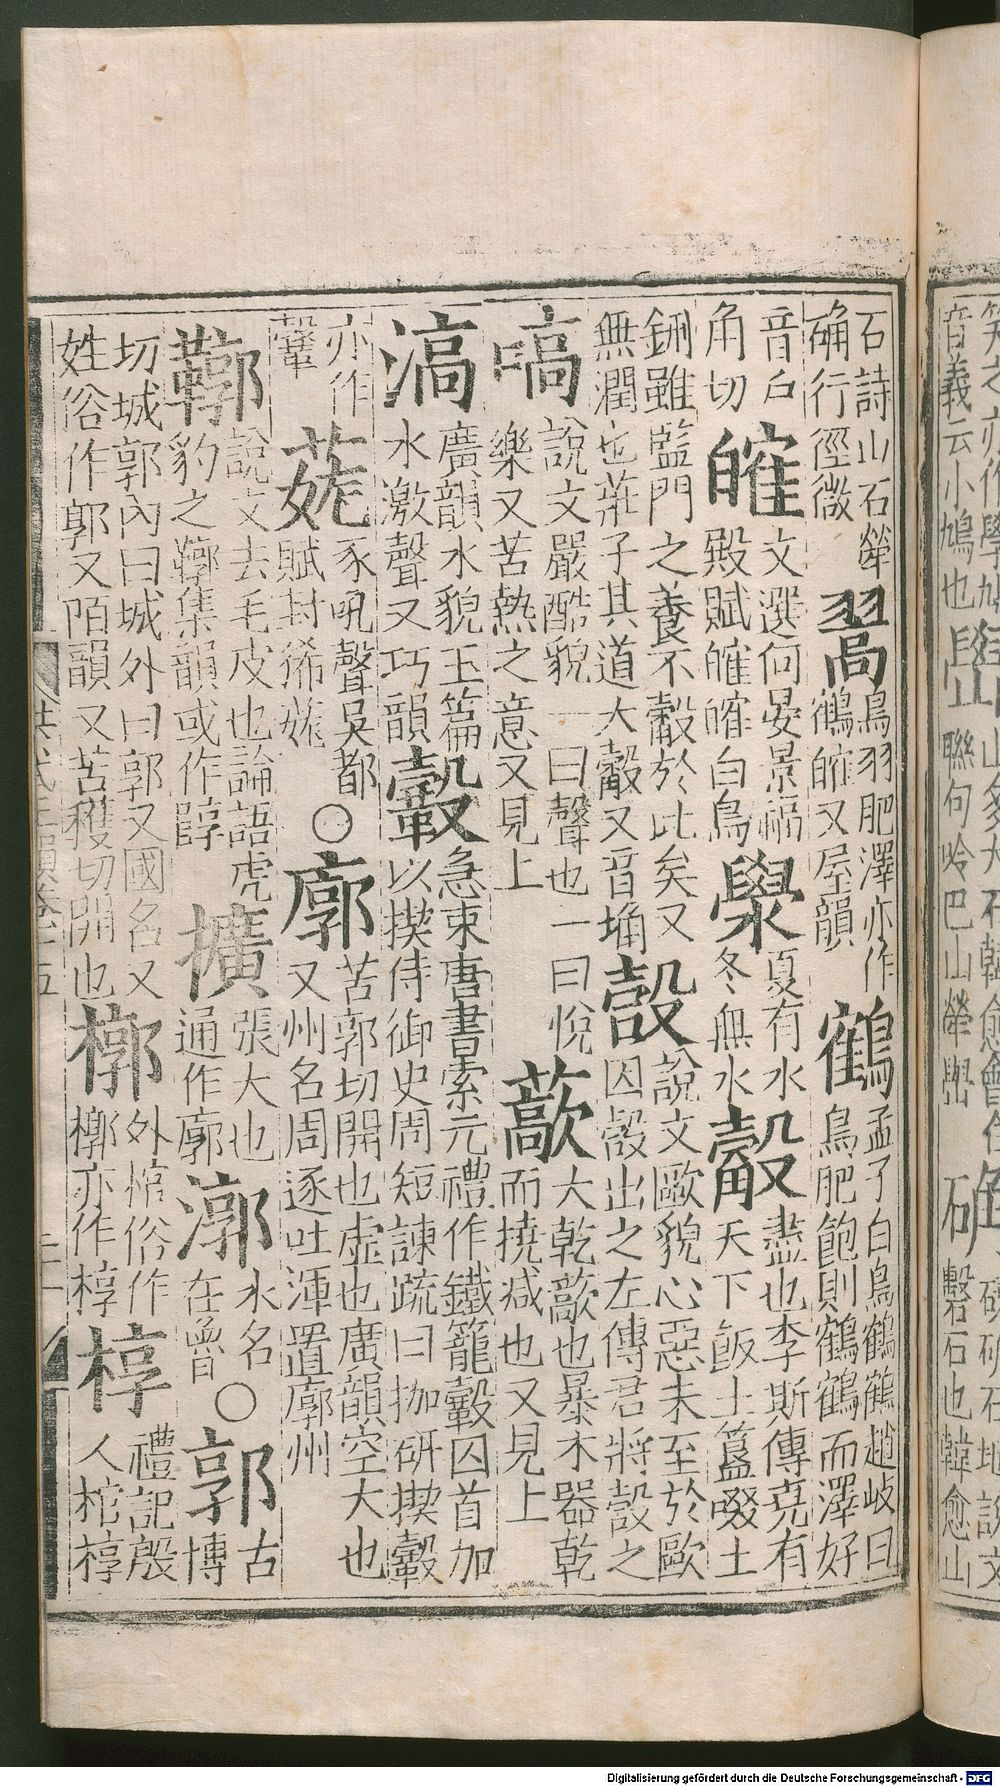 笑之亦作鷽鳩
音義云小鳩也
嶨
山多大石韓愈會合
聯句呤巴山犖嶨
石地說文
礊石也韓愈山
石詩山石犖
确行徑微
翯
鳥羽肥澤亦作
鶴㿥又屋韻
鶴
孟子白鳥鶴鶴趙岐曰
鳥肥飽則鶴鶴而澤好
音戶
角切
㿥
文選何晏景福
殿賦㿥㿥白鳥
澩
夏有水
冬無水
觳
盡也李斯傳堯有
天下飯土簋啜土
鉶雖監門之養不觳於此矣又
無潤也莊子其道大觳又音埆
㱿
說文歐貌心惡未至於歐
因㱿出之左傳君將㱿之
嗃
說文嚴酷貌一曰聲也一曰悅
樂又苦熱之意又見上
藃
大乾藃也暴木器乾
而撓減也又見上
滈
廣韻水貌玉篇
水激聲又巧韻
轂
急束唐書索元禮作鐵籠轂囚首加
以揳侍御史周矩諫疏曰研揳轂
亦作
豕吼聲吳都
賦封狶
○廓
苦郭切開也虛也廣韻空大也
又州名周逐吐渾置廓州
鞹
說文去毛皮也論語虎
豹之鞹集韻或作
擴
張大也
通作廓
漷
水名
在魯
○郭
古
博
切城郭內曰城外曰郭又國名又
姓俗作郭又陌韻又苦穫切開也
槨
外棺俗作
槨亦作椁
椁
禮記殷
人棺椁
洪武正韻卷十五
Digitalisierung gefördert durch die Deutsche Forschungsgemeinschaft - DFG